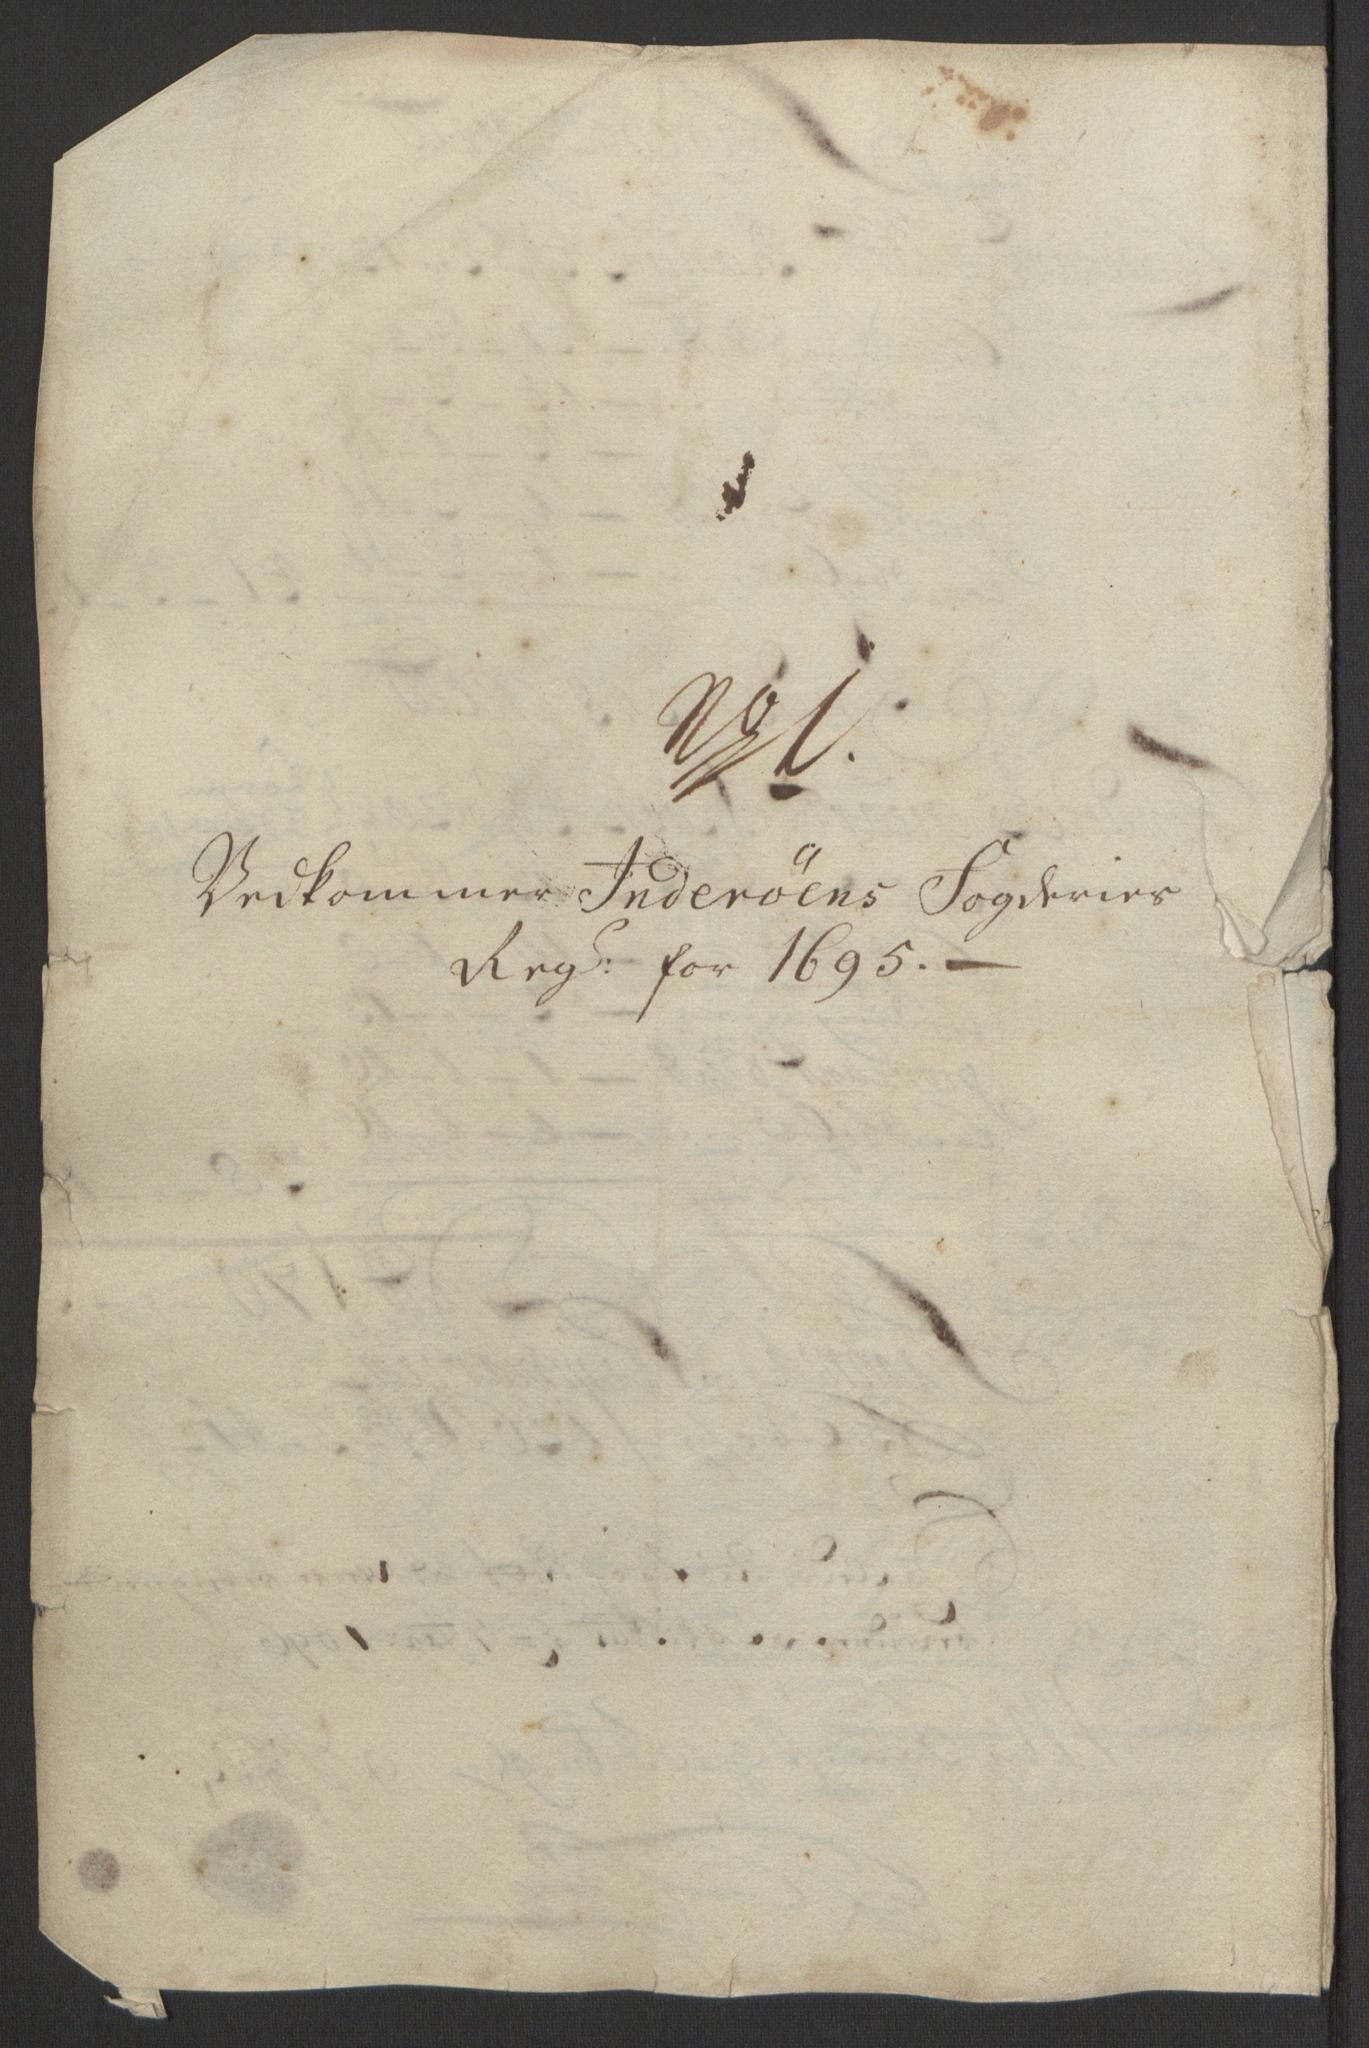 No 1.
Vedkommer Inderöens Fogderies
Regs: for 1695. —